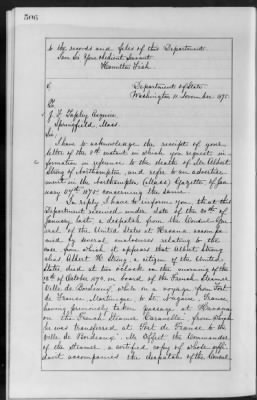 506
to the records and files of this Department.
I am Sir Your obedient Servant
Hamilton Fish
Department of State
Washington 11 November 1875.
J. F. Tapley Esquire
Springfield, Mass.
Sir,
I have to acknowledge the receipt of your
letter of the 8th instant in which you request in
formation in reference to the death of Mr Albert
Strong of Northampton, and refer to an advertise
ment in the Northampton (Mass) Gazette of
1875 concerning the same.
In reply I have to inform you, that this
Department received, under date of the 20th of
January last, a despatch from the Consul Gen
eral of the United States at Havana accompa
nied by several enclosures relating to the
case from which it appears that Albert Strong
alias Albert H. Strong, a citizen of the United
States died at two oclock on the morning of the
of October 1874, on board of the French Steamer
"Ville de Bordeaux", while on a voyage from Fort
de France Martinique, to St. Nazaire, France,
having previously taken passage at Havana
on the French Steamer "Caravelle", from which
he was transferred at Fort de France to the
Ville de Bordeaux. the Commander
of the Steamer a certified copy of whose affi
davit accompanies the despatch of the Consul